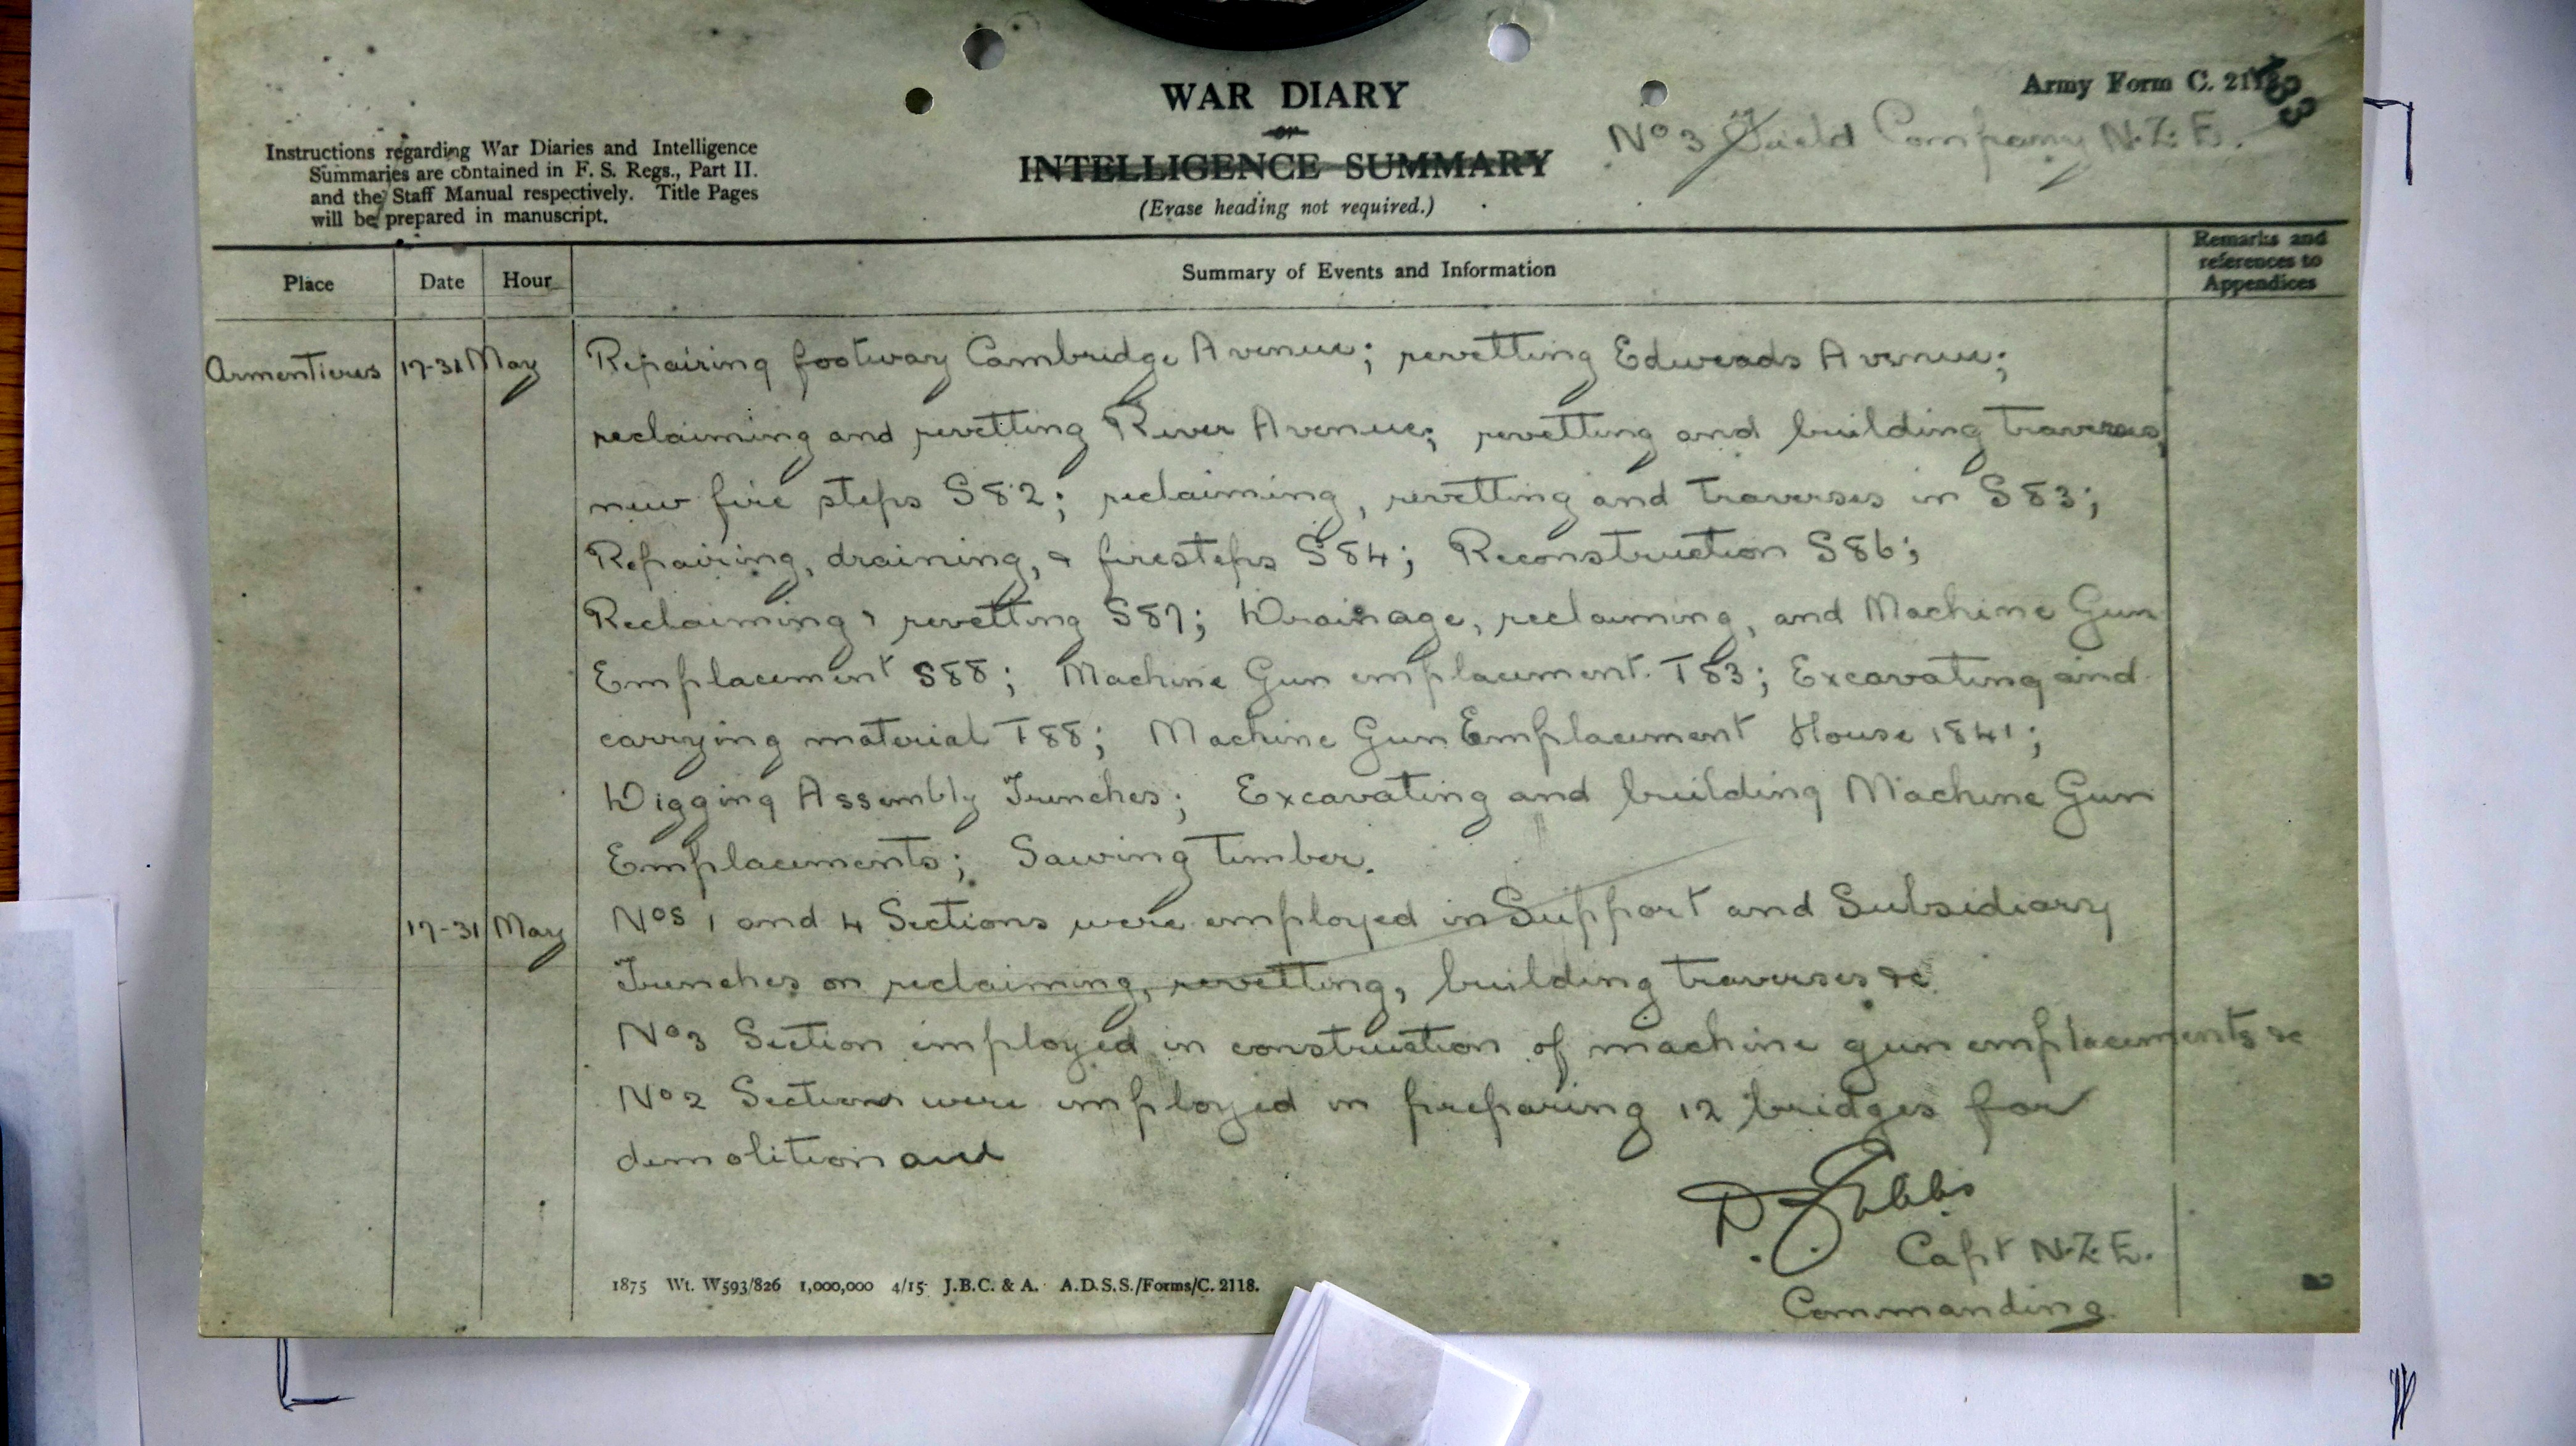 WAR DIARY
or
INTELLIGENCE SUMMARY
(Erase heading not required.)
Army Form C. 2118
No 3 Field Company N.Z.E.
Instructions regarding War Diaries and Intelligence
Summaries are contained in F. S. Regs., Part II.
and the Staff Manual respectively. Title Pages
will be prepared in manuscript.
Place Date Hour Summary of Events and Information
Remarks and
references to
Appendices
Armentieres 17-31 May Repairing footway Cambridge Avenue; revetting Edweads Avenue;
reclaiming and revetting River Avenue; revetting and building traverses,
new fire steps S82; reclaiming, revetting and traverses in S83;
Repairing, draining, & firesteps S84; Reconstruction S86;
Reclaiming & revetting S87; Drainage, reclaiming, and Machine Gun
Emplacement S88; Machine Gun emplacement T83; Excavating and
carrying material T88; Machine Gun Emplacement House 1841;
Digging Assembly Trenches; Excavating and building Machine Gun
Emplacements; Sawing timber.
17-31 May Nos 1 and 4 Sections were employed in Support and Subsidiary
Trenches on reclaiming, revetting, building traverses &c
No 3 Section employed in construction of machine gun emplacements &c
No 2 Section were employed in preparing 12 bridges for
demolition and
D. Gibbs
Capt N.Z.E.
Commanding
1875 Wt. W593/826 1,000,000 4/15 J.B.C. & A. A.D.S.S./Forms/C. 2118.